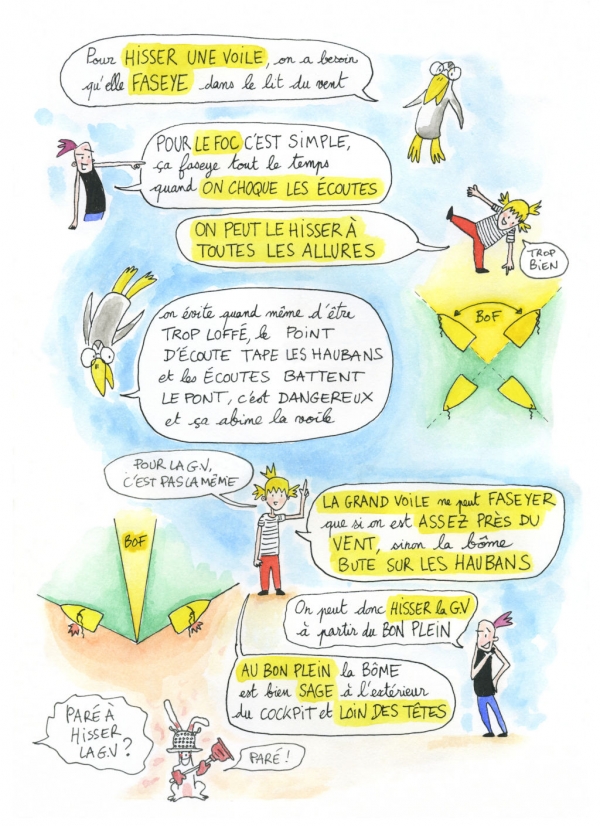 Pour HISSER UNE VOILE, on a besoin
qu'elle FASEYE dans le lit du vent
POUR LE FOC C'EST SIMPLE,
ça faseye tout le temps
quand ON CHOQUE LES ÉCOUTES
ON PEUT LE HISSER À
TOUTES LES ALLURES
TROP
BIEN
BOF
on évite quand même d'être
TROP LOFFÉ, le POINT
D'ÉCOUTE TAPE LES HAUBANS
et les ÉCOUTES BATTENT
LE PONT, c'est DANGEREUX
et ça abime la voile
POUR LA G.V,
C'EST PAS LA MÊME
LA GRAND VOILE ne peut FASEYER
que si on est ASSEZ PRÈS DU
VENT, sinon la bôme
BUTE SUR LES HAUBANS
BOF
On peut donc HISSER la G.V
à partir du BON PLEIN
AU BON PLEIN la BÔME
est bien SAGE à l'extérieur
du COCKPIT et LOIN DES TÊTES
PARÉ À
HISSER
LA G.V ?
PARÉ !